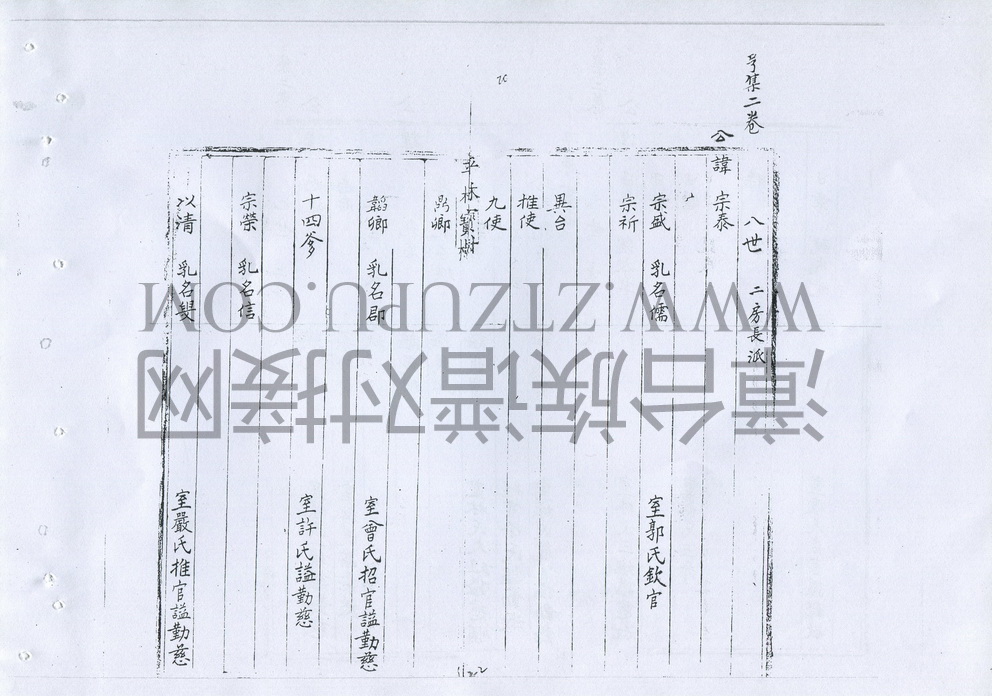 集二卷
八世 二房長派
公諱 宗泰
宗盛 乳名儒 室郭氏欽官
宗祈
異台
推使
九使
寶樹
鼎卿
韜卿 乳名郡 室曾氏招官謚勤慈
十四爹 室許氏謚勤慈
宗榮 乳名信
以清 乳名 室嚴氏推官謚勤慈
WWW.ZTZUPU.COM
漳台族谱对接网